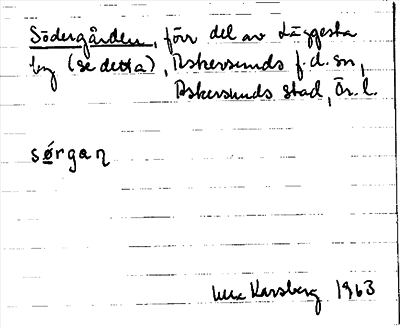 Södergården, förr del av Läggesta
by (se detta), Askersunds f.d. sn,
Askersunds stad, Ör. l.
sørgaɳ
Karsberg 1963